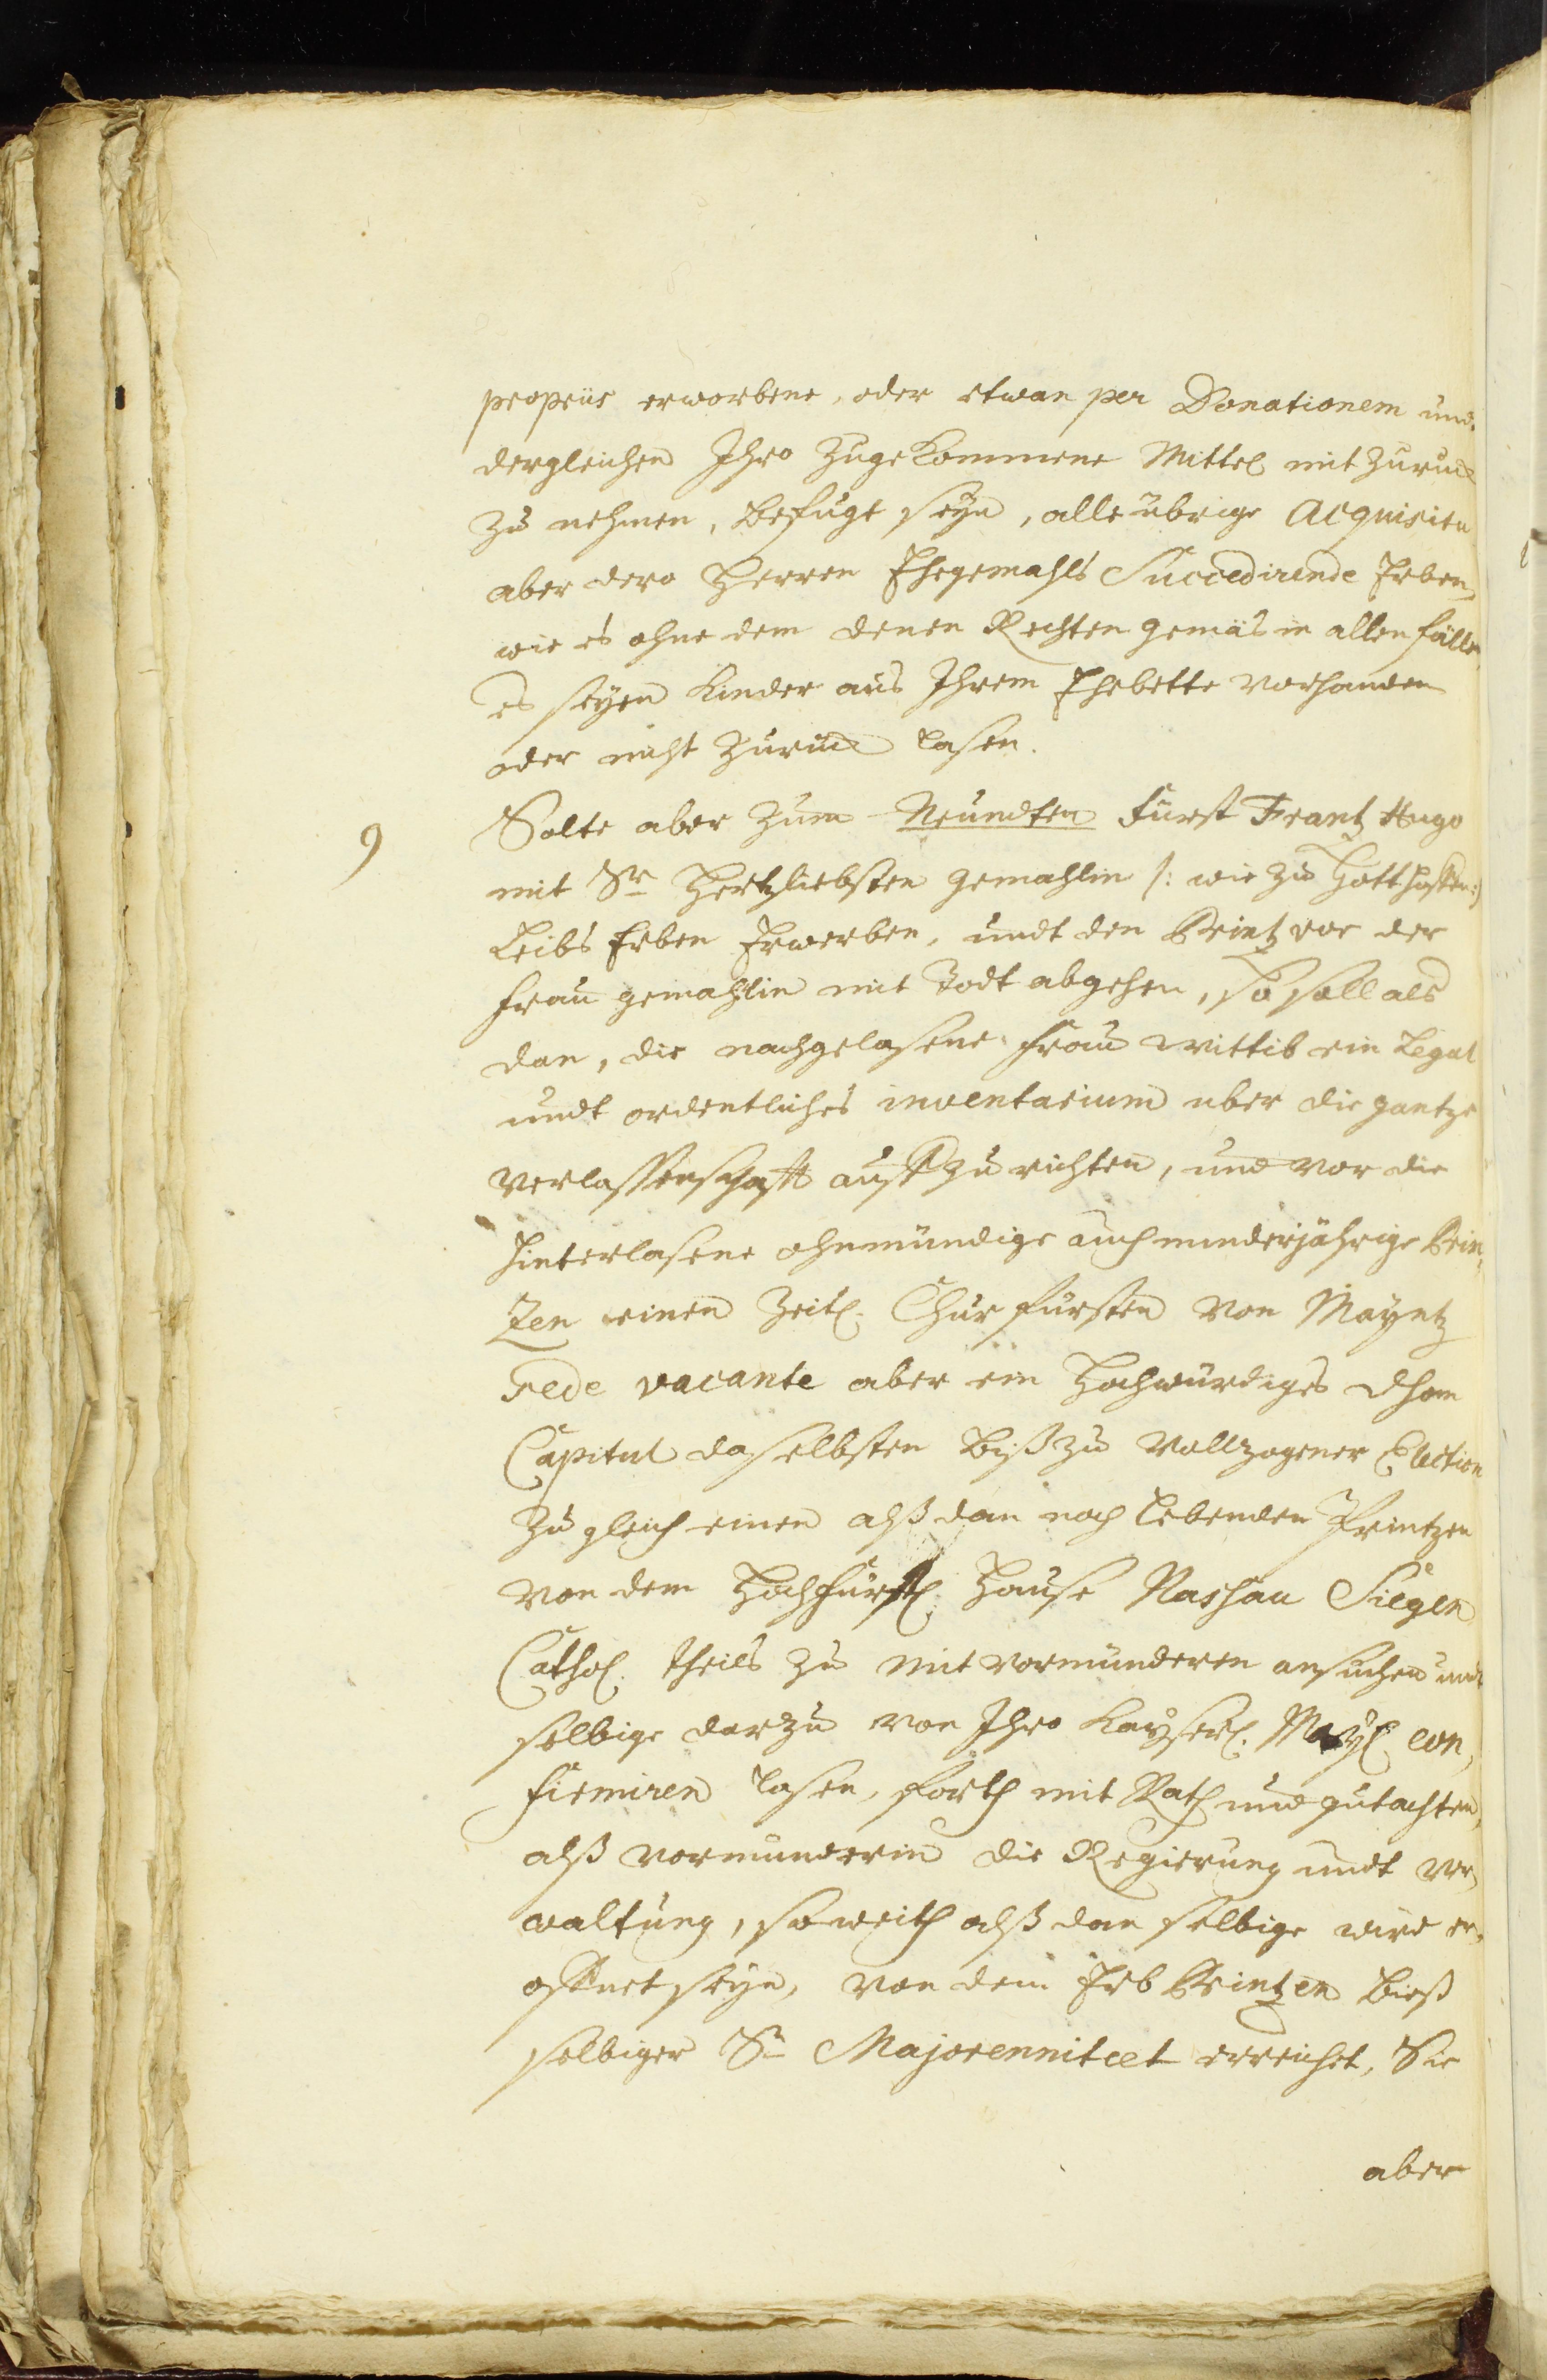 propriis erworbene, oder etwan per Donationem und
dergleichen Ihro zugekommene Mittel mit zurück
zu nehmen, befugt seyn, alle übrige Acquisita
aber dero Herren Ehegemahls Succedirende Erben,
wie es ohne dem denen Rechten gemäs in allen fällen,
es seyen Kinder aus Ihrem Ehebette vorhanden
oder nicht zurück lasen.
9 Solte aber zum Neundten Fürst Frantz Hugo
mit Sr Hertzliebsten gemahlin /: wie zu Gott hoffen :/
Leibs Erben Erwerben, undt den Printz vor der
Frau gemahlin mit Todt abgehen, so soll als
dan, die nachgelasene Frau Wittib ein Legal
undt ordentliches inventarium uber die gantze
Verlassenschafft auffzurichten, und vor die
hinterlasene ohnmündige auch minderjährige Prin,
zen einen Zeitl. Churfürsten von Mayntz
Sede vacante aber ein Hochwürdiges Dhom
Capitul daselbsten biß zu vollzogener Election
zugleich einen alß dan noch lebenden Printzen
von dem Hochfürstl. Hause Nassau Siegen
Cathol. theils zu mit vormünderen ansuchen undt
selbige darzu von Ihro Kayserl. Mayt. con,
firmiren lasen, forth mit Rath und gutachten,
alß vormünderin die Regierung undt ver,
waltung, so weith alß dan selbige wird er,
öffnet seyn, von dem Erb Printzen bieß
selbiger Sr Majorennitaet erreichet, Sie
aber